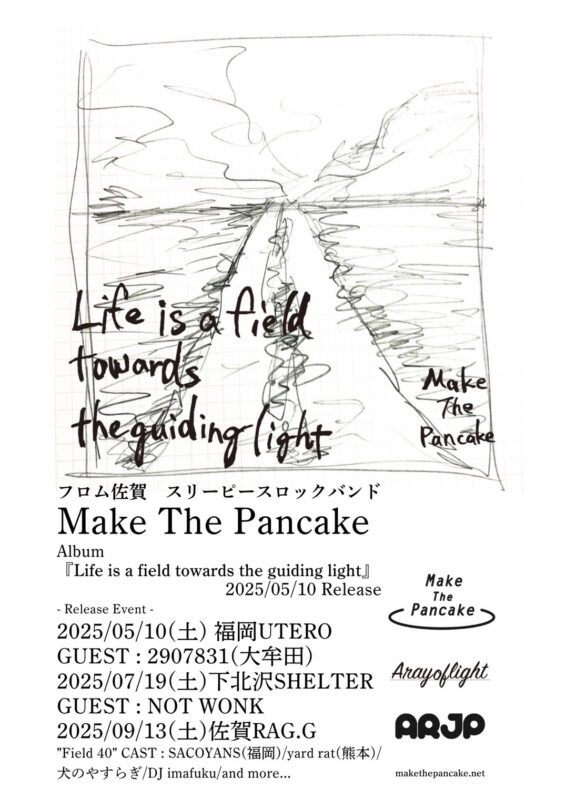 Life is a field
towards
the guiding light
Make
The
Pancake
フロム佐賀　スリーピースロックバンド
Make The Pancake
Album
『Life is a field towards the guiding light』
2025/05/10 Release
- Release Event -
2025/05/10(土) 福岡UTERO
GUEST : 2907831(大牟田)
2025/07/19(土)下北沢SHELTER
GUEST : NOT WONK
2025/09/13(土)佐賀RAG.G
"Field 40" CAST : SACOYANS(福岡)/yard rat(熊本)/
犬のやすらぎ/DJ imafuku/and more...
Make
The
Pancake
Arayoflight
ARJP
makethepancake.net